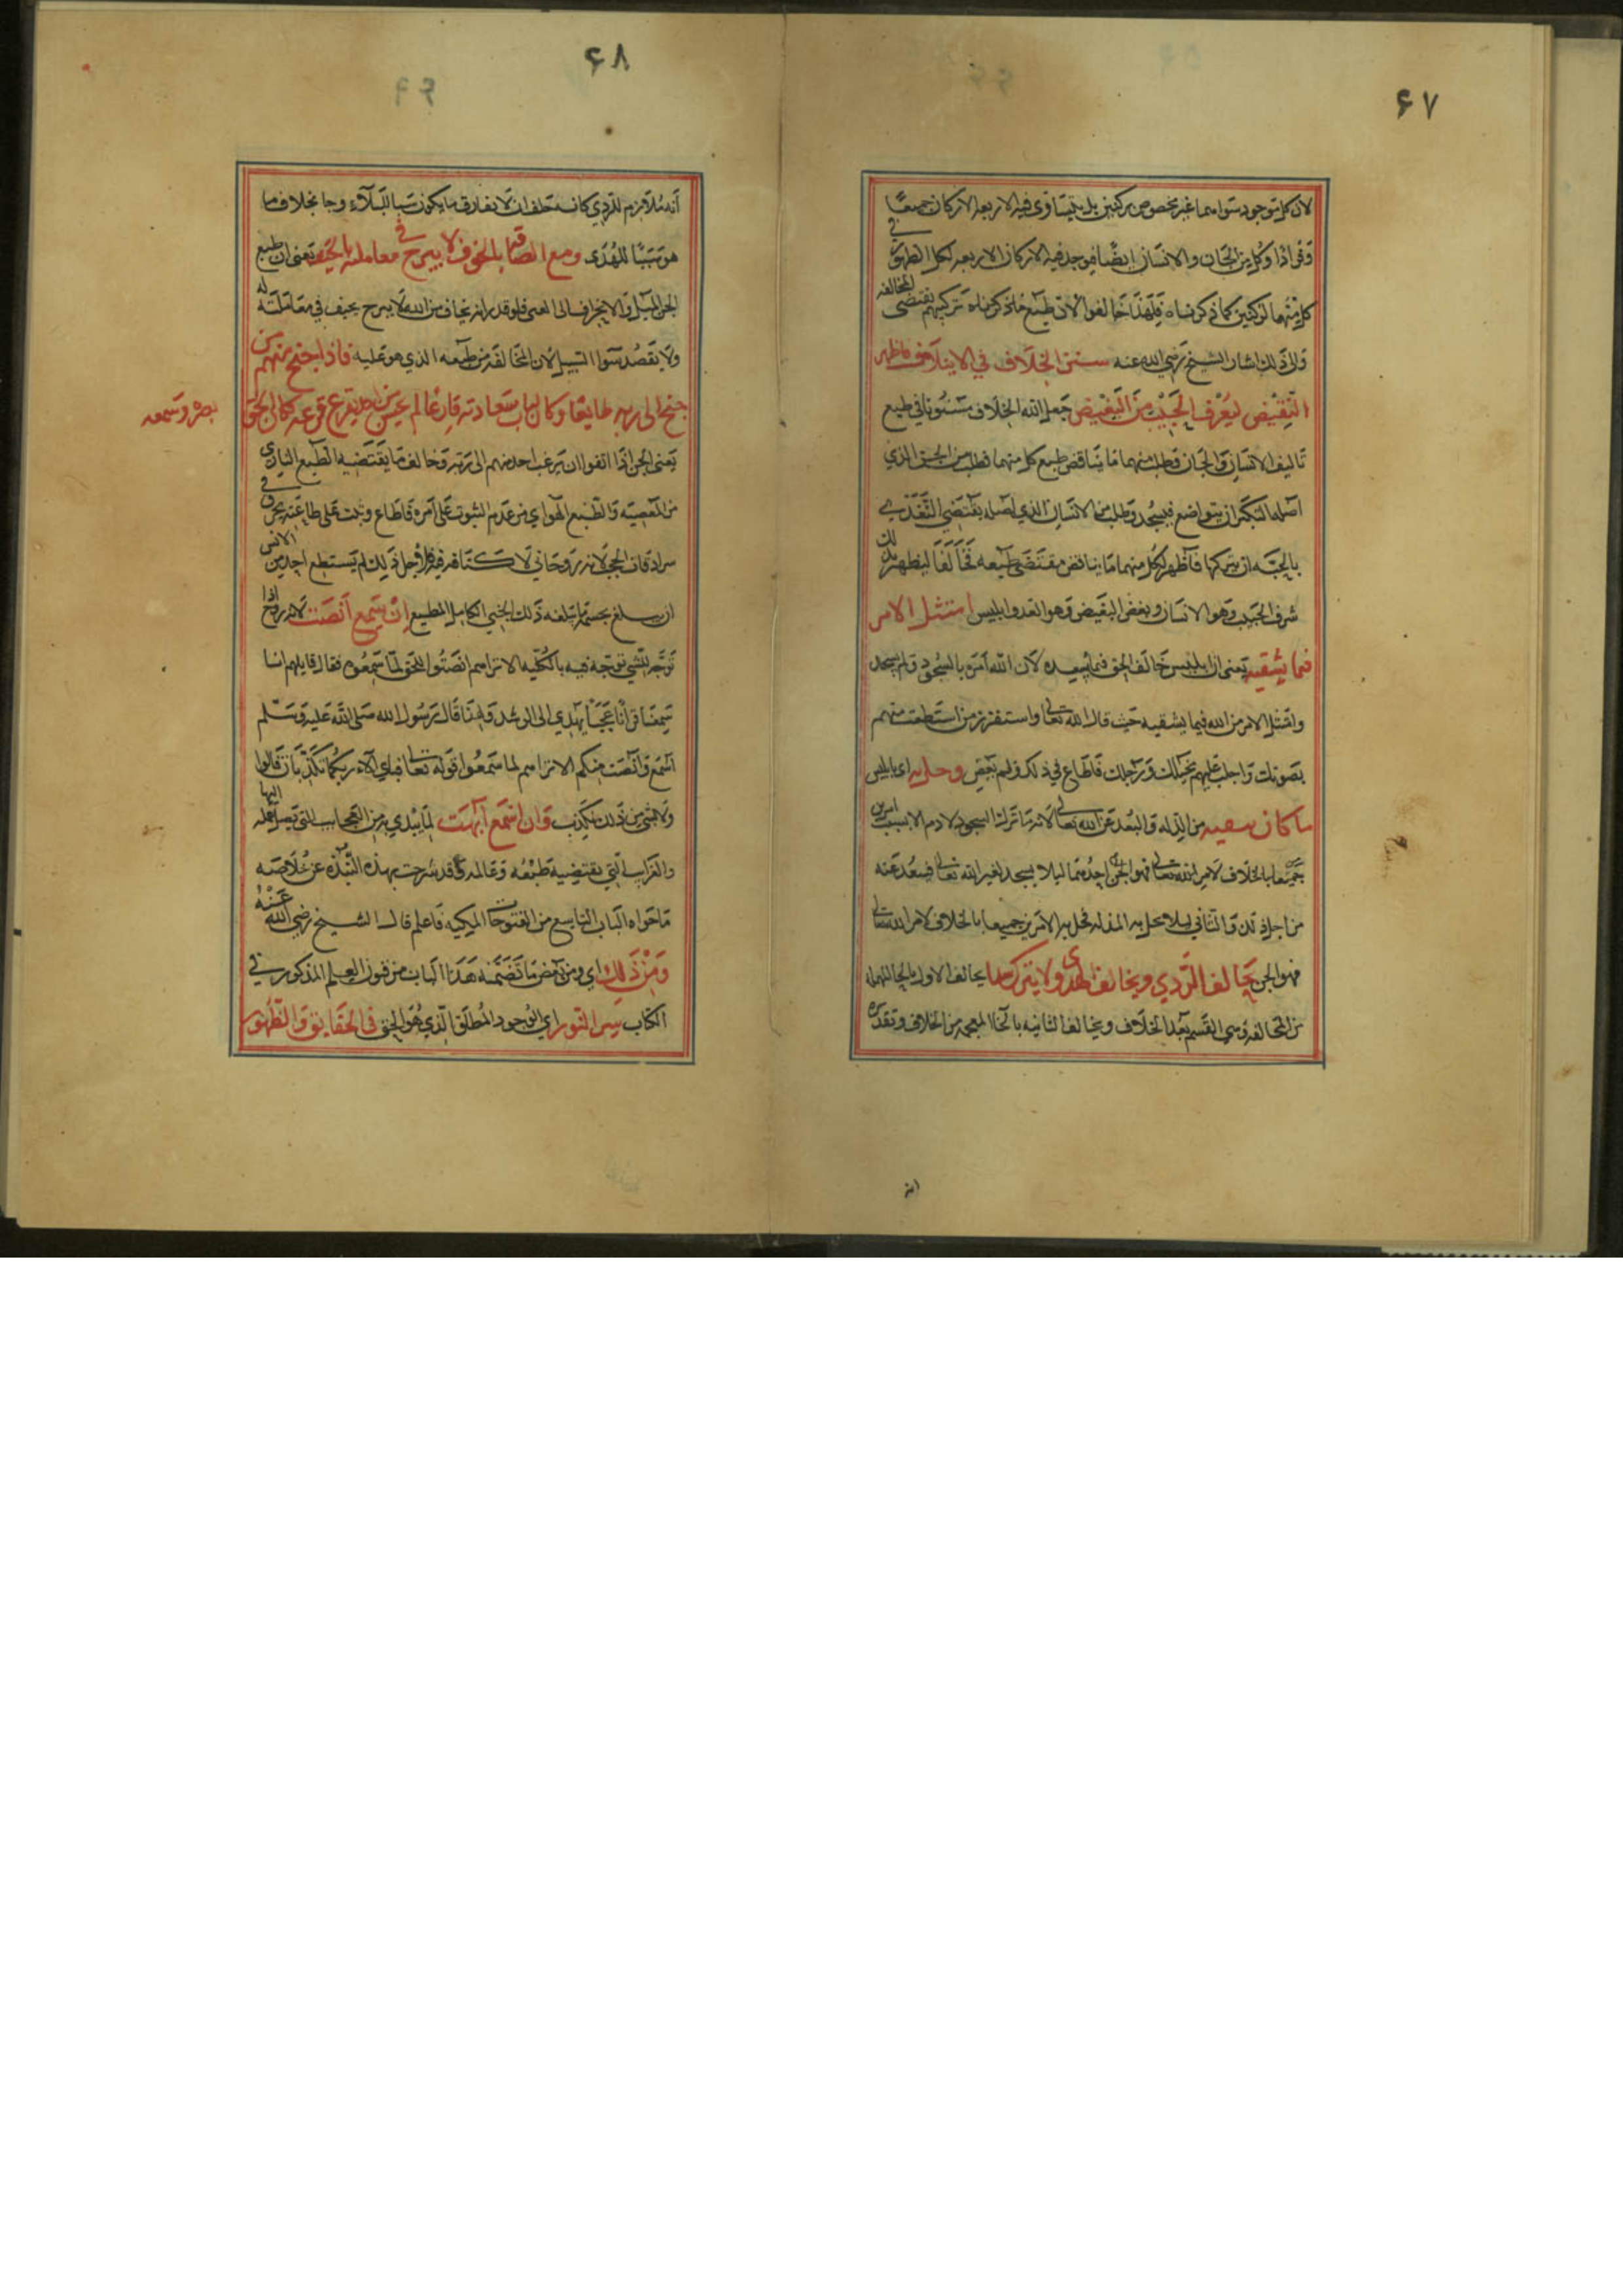 ۶۷
لان كل موجود سواهما غير مخصوص بركنين بل يتساوى فيه الاربعة الاركان جميعًا
وفرادًا وكل من الجان والانسان ايضًا فيوجد فيه الاركان الاربعه لكل الظهور في
كل منهما لركنين كما ذكرناه فلهذا خالفوا لان طبع ما ذكرناه تركيبهم يقتضي المخالفه
ولذلك اشار الشيخ رضي الله عنه سنن الخلاف في الايتلاف فاظهر
النقيض ليعرف الحبيب من البغيض جعل الله الخلاف مسنونا في طبع
تاليف الانسان والجان فطلب منهما ما يناقض طبع كل منهما فطلب من الجن الذي
اصله التكبر ان يتواضع فيسجد وطلب من الانسان الذي اصله يقتضي التغذي
بالحبه ان يتركها فاظهر لكل منهما ما يناقض مقتضى طبعه فخالفا ليظهر بذلك
شرف الحبيب وهو الانسان وبغض البغيض وهو العدو ابليس امتثل الامر
فيما يشقيه يعني ان ابليس خالف الحق فيما يسعده لان الله امره بالسجود ولم يسجد
وامتثل الامر من الله فيما يشقيه حيث قال الله تعالى واستفزز من استطعت منهم
بصوتك واجلب عليهم بخيلك ورجلك فاطاع في ذلك ولم يعص وحل به اي بابليس
ما كان من الذله والبعد عن الله تعالى لانه ما ترك السجود لادم الا بسبب امرين
جميعا بالخلاف لامر الله تعالى احدهما ليلا يسجد لغير الله تعالى فيبعد عنه
من اجل ذلك والثاني ليلا يحل به المذله فحل به الامرين جميعا بالخلاف لامر الله تعالى
فهو الجن يحالف الردي ويخالف الهدى ولا يترك سدا يحالف الاول بالحا المهمله
من المحالفه وسمي القسم بعد الخلاف ويخالف الثانيه بالخا المعجمه من الخلاف وتقديره
انه
۶۸
انه ملازم للردي كانه حلف ان لا يفارق ما يكون سببا للبلآء وجا بخلاف ما
هو سببًا للهدى ومع اتصافه بالخوف لا يبرح في معاملته بالحيف يعني ان طبع
الجن الميل والانحراف الى العمى فلو قدر انه يخاف من الله لا يبرح يحيف في معاملته له
ولا يقصد سوا السبيل لان المخالفه من طبعه الذي هو عليه فاذا جنح منهم من
جنح الى ربه طايعًا وكان لباب سعادته قارعًا لم يحسن احد يقرع قرعه كان الحق
بصره وسمعه
يعني الجن اذا اتفق ان يرغب احد منهم الى ربه وخالف ما يقتضيه الطبع الناري
من المعصيه والطبع الهوائي من عدم الثبوت على امره فاطاع وثبت على طاعته يخرق في
سرادقات الحجب لانه روحاني لا كثافه فيه فلاجل ذلك لم يستطع احد من الانس
ان يبلغ بجسمه ما يبلغه ذلك الجني الكامل المطيع ان سمع انصت لانه روح اذا
توجه لشي توجه فيه بالكليه الا تراهم انصتوا للحق لما سمعوه فقال قايلهم انا
سمعنا قرانًا عجبًا يهدي الى الرشد ولهذا قال رسول الله صلى الله عليه وسلم
اسمع وانصت منكم الا تراهم لما سمعوا قوله تعالى فباي آلاء ربكما تكذبان قالوا
ولا بشي من ذلك نكذب وان اسمع ابهت لما يبدي به من العجايب التي يصل عمله اليها
والغرايب التي يقتضيه طبعه وعالمه وقد شرحت بهذه النبذه عن خلاصه
ما حواه الباب التاسع من الفتوحات المكيه فاعلم قال الشيخ رضي الله عنه
ومن ذلك اي ومن بعض ما تضمنه هذا الباب من فنون العلم المذكور في
الكتاب سر النور اي الوجود المطلق الذي هو الحق في الحقايق والظهور